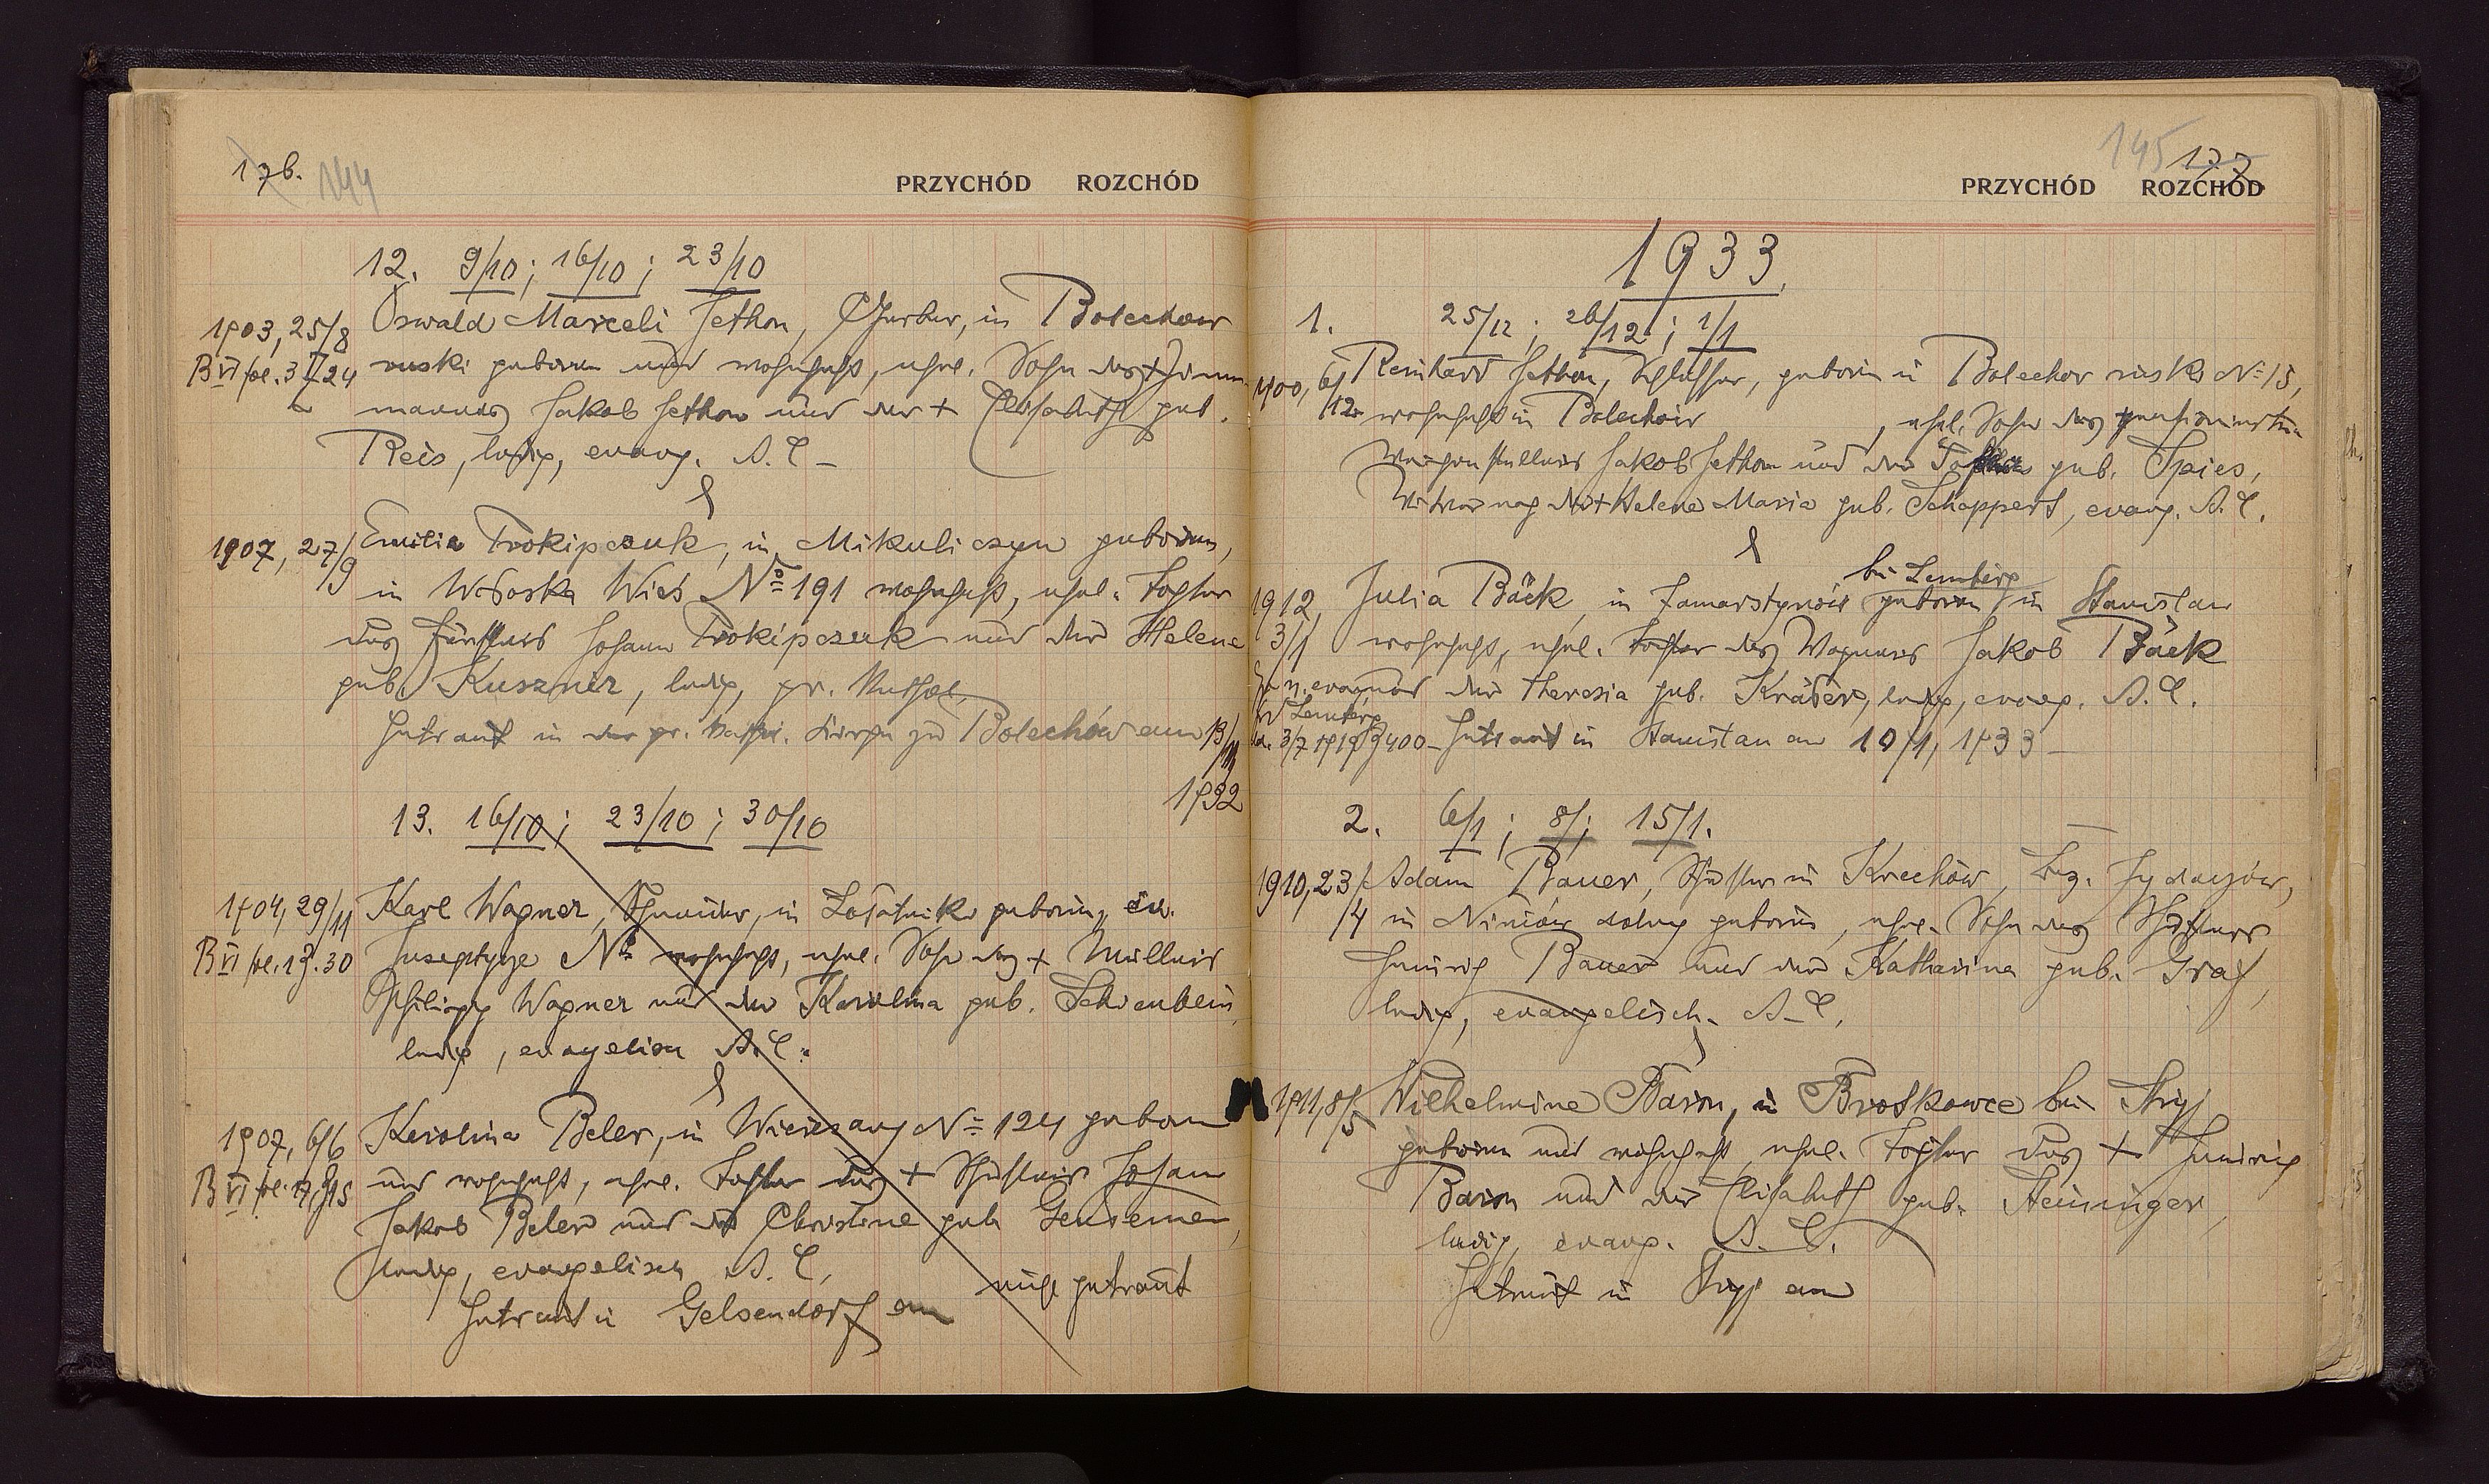 176. 144
PRZYCHÓD ROZCHÓD
12. 9/10; 16/10; 23/10
1903, 25/8 Oswald Marceli Jethon, Gerber, in Bolechow
B VI fol. 3 Z 24 ruski geboren und wohnhaft, ehel. Sohn des + Zimmer-
mannes Jakob Jethon und der + Elisabeth geb.
Reis, ledig, evang. A. C. –
&
1907, 27/9 Emilia Prokipczuk, in Mikuliczyn geboren,
in Wołoska Wieś No 191 wohnhaft, ehel. Tochter
des Försters Johann Prokipczuk und der Helene
geb. Kusznir, ledig, gr. kathol.
Getraut in der gr. kathol. Kirche zu Bolechów am 13/
1932
13. 16/10; 23/10; 30/10
1904, 29/11 Karl Wagner, Schneider, in geboren, in
B VI fol. 19. 30 Juseptycze No wohnhaft, ehel. Sohn des + Müllers
Philipp Wagner und der Karolina geb. Schienbein,
ledig, evangelisch A. C.
&
1907, 6/6 Karolina Beler, in No 124 geboren
B VI fol. 17, 95 und wohnhaft, ehel. Tochter des + Schusters Johann
Jakob Beler und der Christine geb.
ledig, evangelisch A. C.
nicht getraut
Getraut in Gelsendorf am
145 177
PRZYCHÓD ROZCHÓD
1933.
1. 25/12; 26/12; 1/1
1900, 6/ Reinhard Jethon, Schlosser, geboren in Bolechow ruski No 15,
12 wohnhaft in Bolechow, ehel. Sohn des pensionierten
Weichenstellers Jakob Jethon und der geb. Spies,
Witwer nach der + Helene Maria geb. Schappert, evang. A. C.
&
bei Lemberg
1912, Julia Bäck, in Zamarstynów geboren, in Stanislau
3/1 wohnhaft, ehel. Tochter des Wagners Jakob Bäck
und der Theresia geb. Kräter, ledig, evang. A. C.
Lemberg
3/7 1919 Z 400 – Getraut in Stanislau am 10/1, 1933 –
2. 6/1; 8/; 15/1.
1910, 23/ Adam Bauer, Schuster in Krechów, Bez. Żydaczów,
/4 in Niniów dolny geboren, ehel. Sohn des Schusters
Heinrich Bauer und der Katharina geb. Graf,
ledig, evangelisch. A. C.
&
1911, 8/5 Wilhelmine Baron, in Bratkowce bei Stryj
geboren und wohnhaft, ehel. Tochter des + Heinrich
Baron und der Elisabeth geb. Heuninger,
ledig, evang. A. C.
Getraut in Stryj am